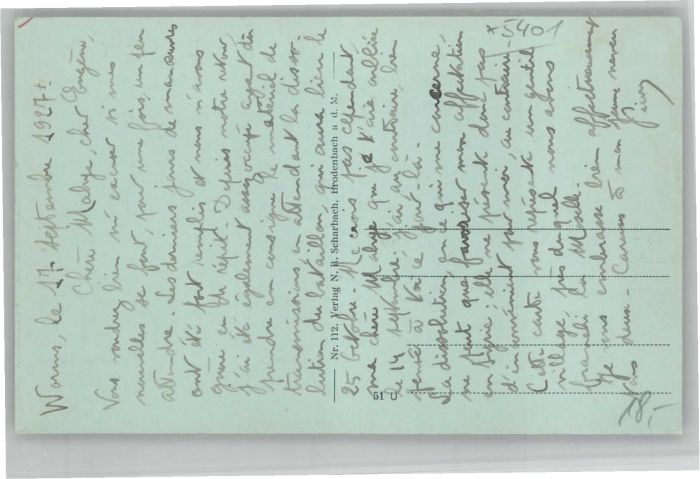 Worms, le 17 Septembre 1927.
Chère Maly, cher Eugène,
Vous voudrez bien m'excuser si mes
nouvelles se font, pour une fois, un peu
attendre. Les derniers jours de manœuvres
ont été fort remplis et nous n'avons
guère eu de répit. Depuis notre retour
j'ai été également assez occupé ayant dû
prendre en consigne le matériel de
transmissions en attendant la disso-
lution du bataillon, qui aura lieu le
25 Octobre. Ne crois pas cependant,
ma chère Maly que je t'aie oubliée
le 14 septembre. J'ai au contraire, bien
pensé à toi ce jour-là.
La dissolution, en ce qui me concerne,
ne peut que favoriser mon affectation
en Algérie; elle ne présente donc pas
d'inconvénient pour moi, au contraire.
Cette carte vous représente un gentil
village, près duquel nous avons
franchi la Moselle.
Je vous embrasse bien affectueusement
tous deux. Caresses à mon jeune neveu
Nr. 112. Verlag N. R. Scharbach, Brodenbach a. d. M.
51 U
*5401
18,-